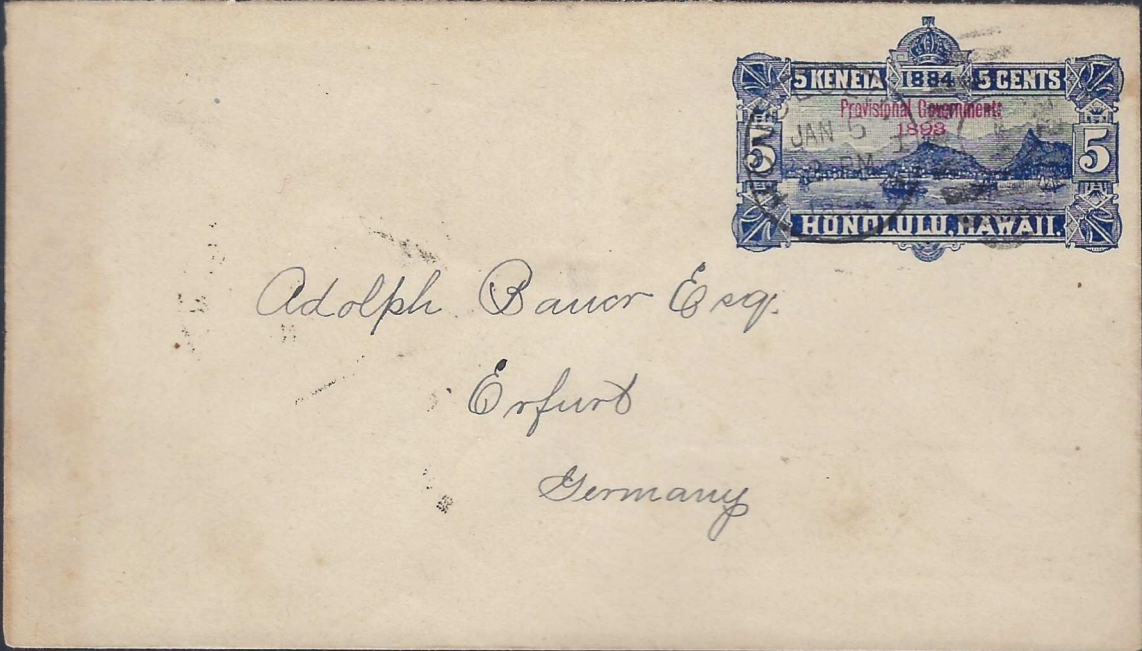 5 KENETA 1884 5 CENTS
Provisional Government
1893
JAN 5
2 PM
5 5
HONOLULU, HAWAII.
Adolph Bauer Esq.
Erfurt
Germany